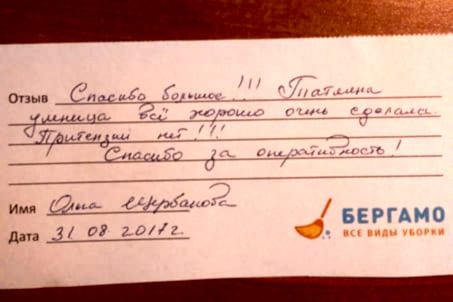 Отзыв Спасибо большое!!! Татьяна
умница всё хорошо очень сделала.
Притензий нет!!!
Спасибо за оперативность!
Имя Ольга Щербакова
Дата 31 08 2017г.
БЕРГАМО
ВСЕ ВИДЫ УБОРКИ